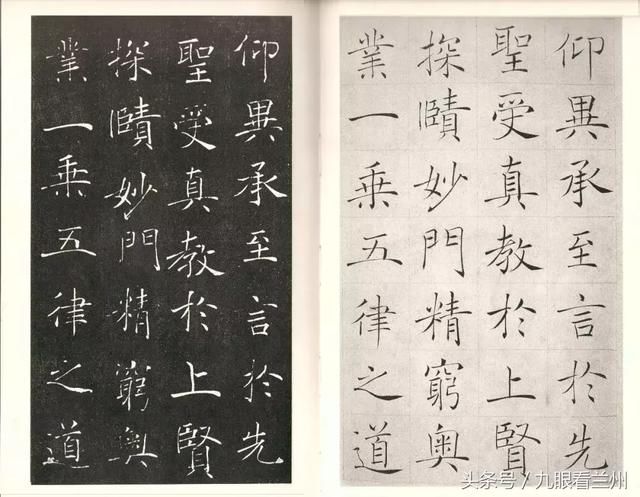 仰異承至言於先
聖受真教於上賢
探賾妙門精窮奥
業一乘五律之道
仰異承至言於先
聖受真教於上賢
探賾妙門精窮奥
業一乘五律之道
头条号/九眼看兰州